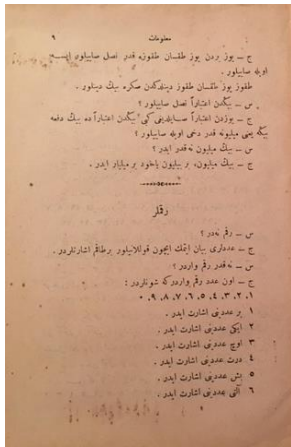 معلومات ٩
ج — يوز بردن يوز طقسان طقوزه قدر نصل صاييليور ايسه
اويله صاييلور .
طقوز يوز طقسان طقوز ديندكدن صكره بيك دينلور .
س — بيكدن اعتباراً نصل صاييلور ؟
ج — يوزدن اعتباراً صايلديغى كبى بيكدن اعتباراً ده بيك دفعه
بيكه يعنى مليونه قدر دخى اويله صاييلور ؟
س — بيك مليون نه قدر ايدر ؟
ج — بيك مليون، بر بيليون ياخود بر مليار ايدر .
رقملر
س — رقم نه‌در ؟
ج — عددلرى بيان ايتمك ايچون قوللانيلور برطاقم اشارتلردر .
س — نه‌قدر رقم واردر ؟
ج — اون عدد رقم واردركه شونلردر :
١، ٢، ٣، ٤، ٥، ٦، ٧، ٨، ٩، ٠
١ بر عددينى اشارت ايدر .
٢ ايكى عددينى اشارت ايدر .
٣ اوچ عددينى اشارت ايدر .
٤ درت عددينى اشارت ايدر .
٥ بش عددينى اشارت ايدر .
٦ آلتى عددينى اشارت ايدر .